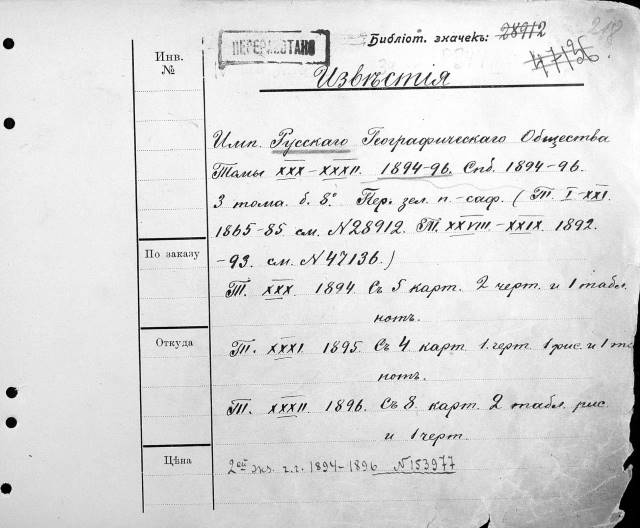 ПЕРЕРАБОТАНО
Библіот. значекъ: 28912
218
47136
Инв.
№
Извѣстія
Имп. Русскаго Географическаго Общества
Томы XXX–XXXII. 1894-96. Спб. 1894-96.
3 тома. б. 8º. Пер. зел. п.-саф. (Т. I–XXI.
1865-85 см. N28912. Т. XXVIII–XXIX. 1892
-93. см. N47136.)
По заказу
Т. XXX 1894 Съ 5 карт. 2 черт. и 1 табл.
нотъ.
Откуда
Т. XXXI 1895. Съ 4 карт 1 черт. 1 рис. и 1
нотъ.
Т. XXXII 1896. Съ 8. карт. 2 табл. рис.
и 1 черт.
Цѣна
2ой экз. г.г. 1894–1896 N153977